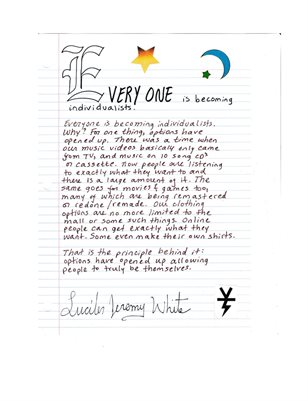 EVERY ONE is becoming
individualists.
Everyone is becoming individualists.
Why? For one thing, options have
opened up. There was a time when
our music videos basically only came
from TV, and music on 10 song CD's
or cassette. Now people are listening
to exactly what they want to and
there is a large amount of it. The
same goes for movies & games too,
many of which are being remastered
or redone / remade. Our clothing
options are no more limited to the
mall or some such things. Online
people can get exactly what they
want. Some even make their own shirts.
That is the principle behind it:
options have opened up allowing
people to truly be themselves.
Lucifer Jeremy White